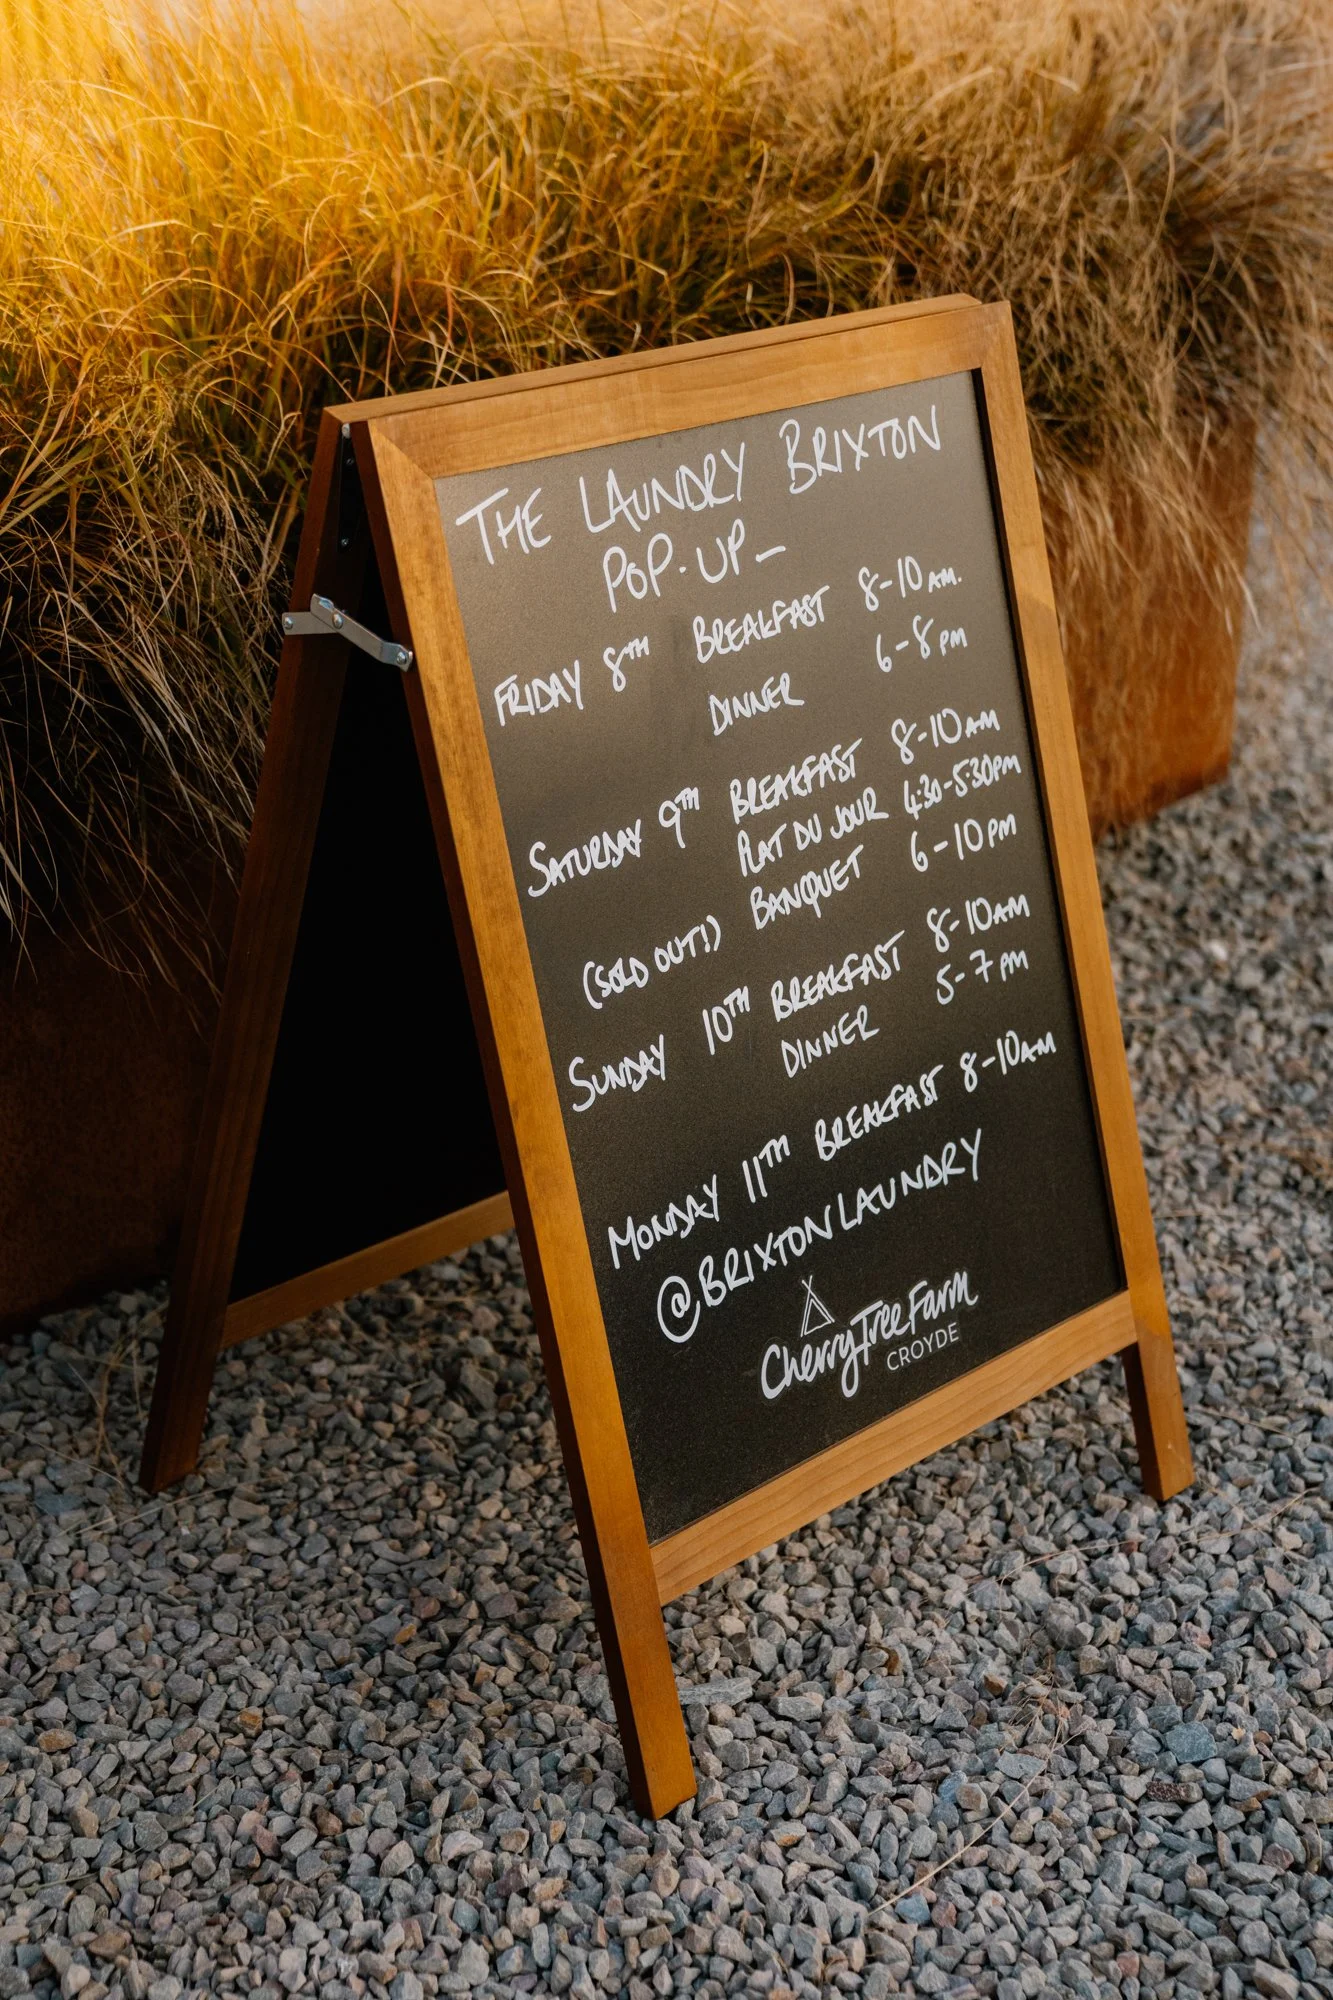 THE LAUNDRY BRIXTON
POP-UP-
FRIDAY 8TH BREAKFAST 8-10 AM.
DINNER 6-8 PM
SATURDAY 9TH BREAKFAST 8-10AM
PLAT DU JOUR 4:30-5:30PM
(SOLD OUT!) BANQUET 6-10 PM
SUNDAY 10TH BREAKFAST 8-10AM
DINNER 5-7 PM
MONDAY 11TH BREAKFAST 8-10AM
@BRIXTONLAUNDRY
CherryTreeFarm
CROYDE